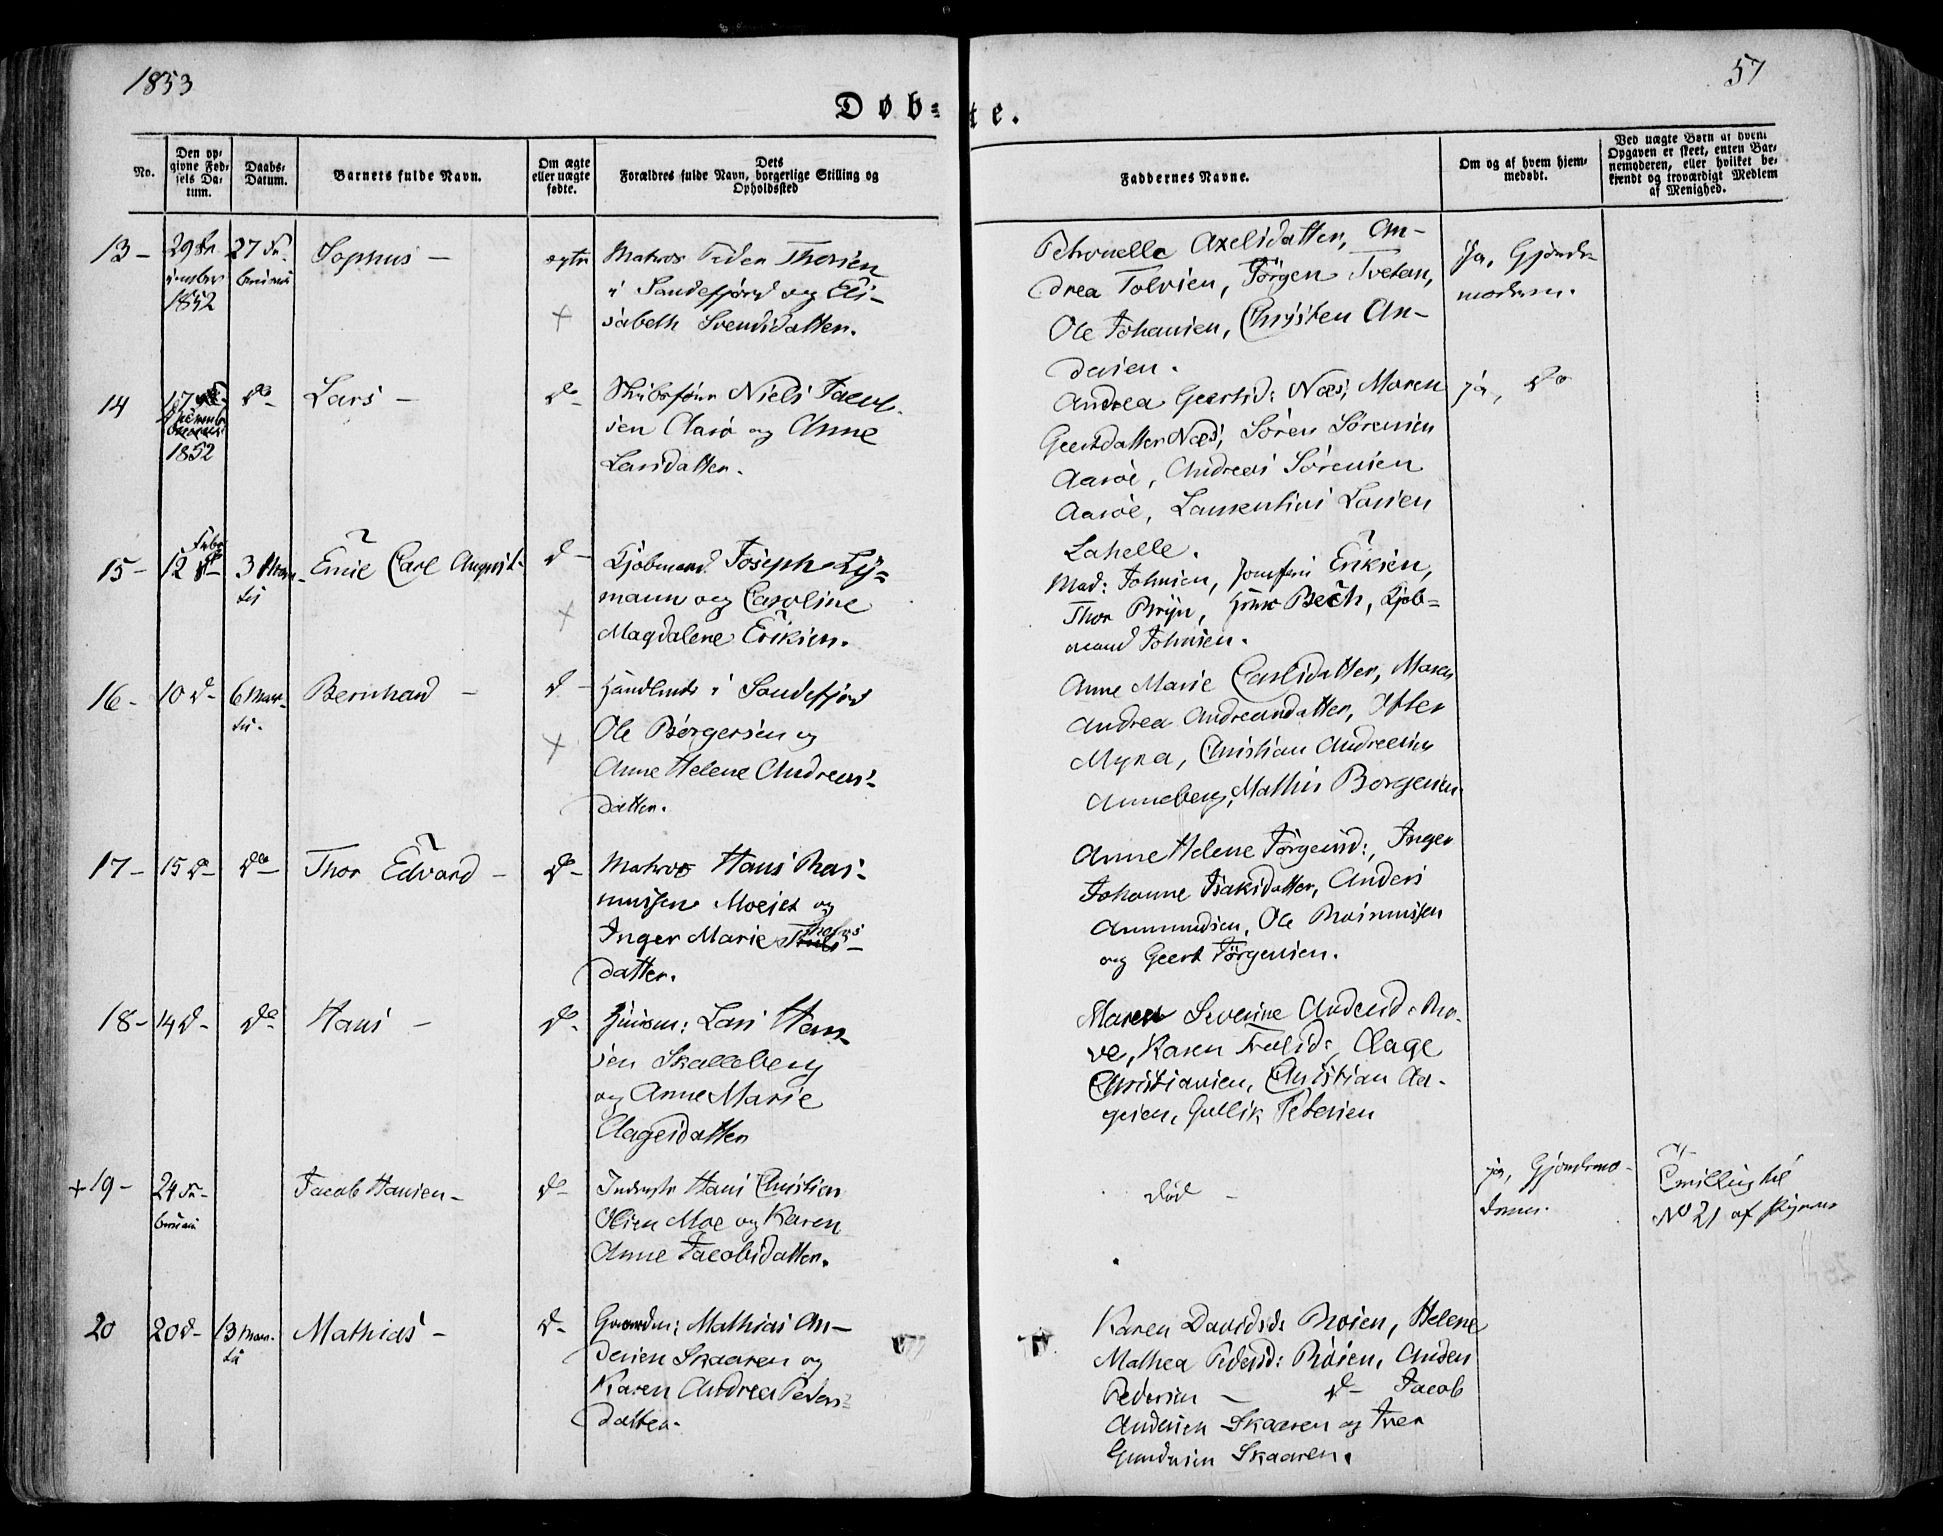 1853
57
Døb=te.
No.
Den op=
givne Fød=
sels Da=
tum.
Daabs=
Datum.
Barnets fulde Navn.
Om ægte
eller uægte
fødte.
Dets
Forældres fulde Navn, borgerlige Stilling og
Opholdssted
Faddernes Navne.
Om og af hvem hjem=
medøbt.
Ved uægte Børn af hvem
Opgaven er skeet, enten Bar=
nemoderen, eller hvilket be=
kjendt og troværdigt Medlem
af Menighed.
13 -
1852
27 Fe-
bruari
Sophus -
ægte
Matros Peder Thorsen
i Sandefjord og Eli-
sabeth Svendsdatter.
Petronelle Axelsdatter, An-
drea Tolvsen, Jörgen Tvetan,
Ole Johansen, Christen An-
dersen.
Ja, Gjorde-
moderen.
14
17
1852
do
Lars -
do
Skibsfører Niels Jacob-
sen Asrø og Anne
Larsdatter.
Andrea Geertsd: Næs, Maren
Geertsdatter Næs, Sören Sörensen
Aasröe, Andreas Sörensen
Aasröe, Laurentius Larsen
Lahelle.
ja, do
15 -
12 Febr
3 Mar-
tij
Emil Carl August -
d -
Kjöbmand Joseph Ly=
mann og Caroline
Magdalene Eriksen.
Mad: Johnsen, Jomfru Eriksen,
Thor Bryn, Bech, Kjöb=
mand Johnsen.
16 -
10 d -
6 Mar-
tii.
Bernhard -
d -
i Sandefjord
Ole Börgersen og
Anne Helene Andreas-
datter.
Anne Marie Carlsdatter, Maren
Andrea Andreasdatter, Ofter
Myra, Christian Andreasen
Anneberg, Mathis Borgersen.
17 -
15 d -
do
Thor Edvard -
do -
Matros Hans Ras-
mussen Moejet og
Inger Marie Thors-
datter.
Anne Helene Jörgensd:, Inger
Johanne Isaksdatter, Anders
Ammundsen, Ole Rasmussen
og Geert Jörgensen.
18 -
14 d -
do
Hans -
do -
Huusm: Lars Han-
sen Skalleberg
og Anne Marie
Clagesdatter
Maren Severine Andersd: Ro-
ve, Karen Trulsd: Clage
Christiansen, Christian Aa-
gesen, Gullik Petersen
+ 19 -
24 Fe-
bruari
Jacob Hansen -
do
Inderste Hans Christian
Olsen Moe og Karen
Anne Jacobsdatter.
död -
ja, Gjordemo-
deren.
Tvilling til
No 21 af Pigerne
20
20 d -
13 Mar-
tii
Mathias -
d -
Gaardm: Mathias An-
dersen Skaaren og
Karen Andrea Peders-
datter.
Karen Davidsd: Röien, Helene
Mathea Pedersd: Röien, Anders
Pedersen - d - Jacob
Andersen Skaaren og Iver
Gundersen Skaaren.